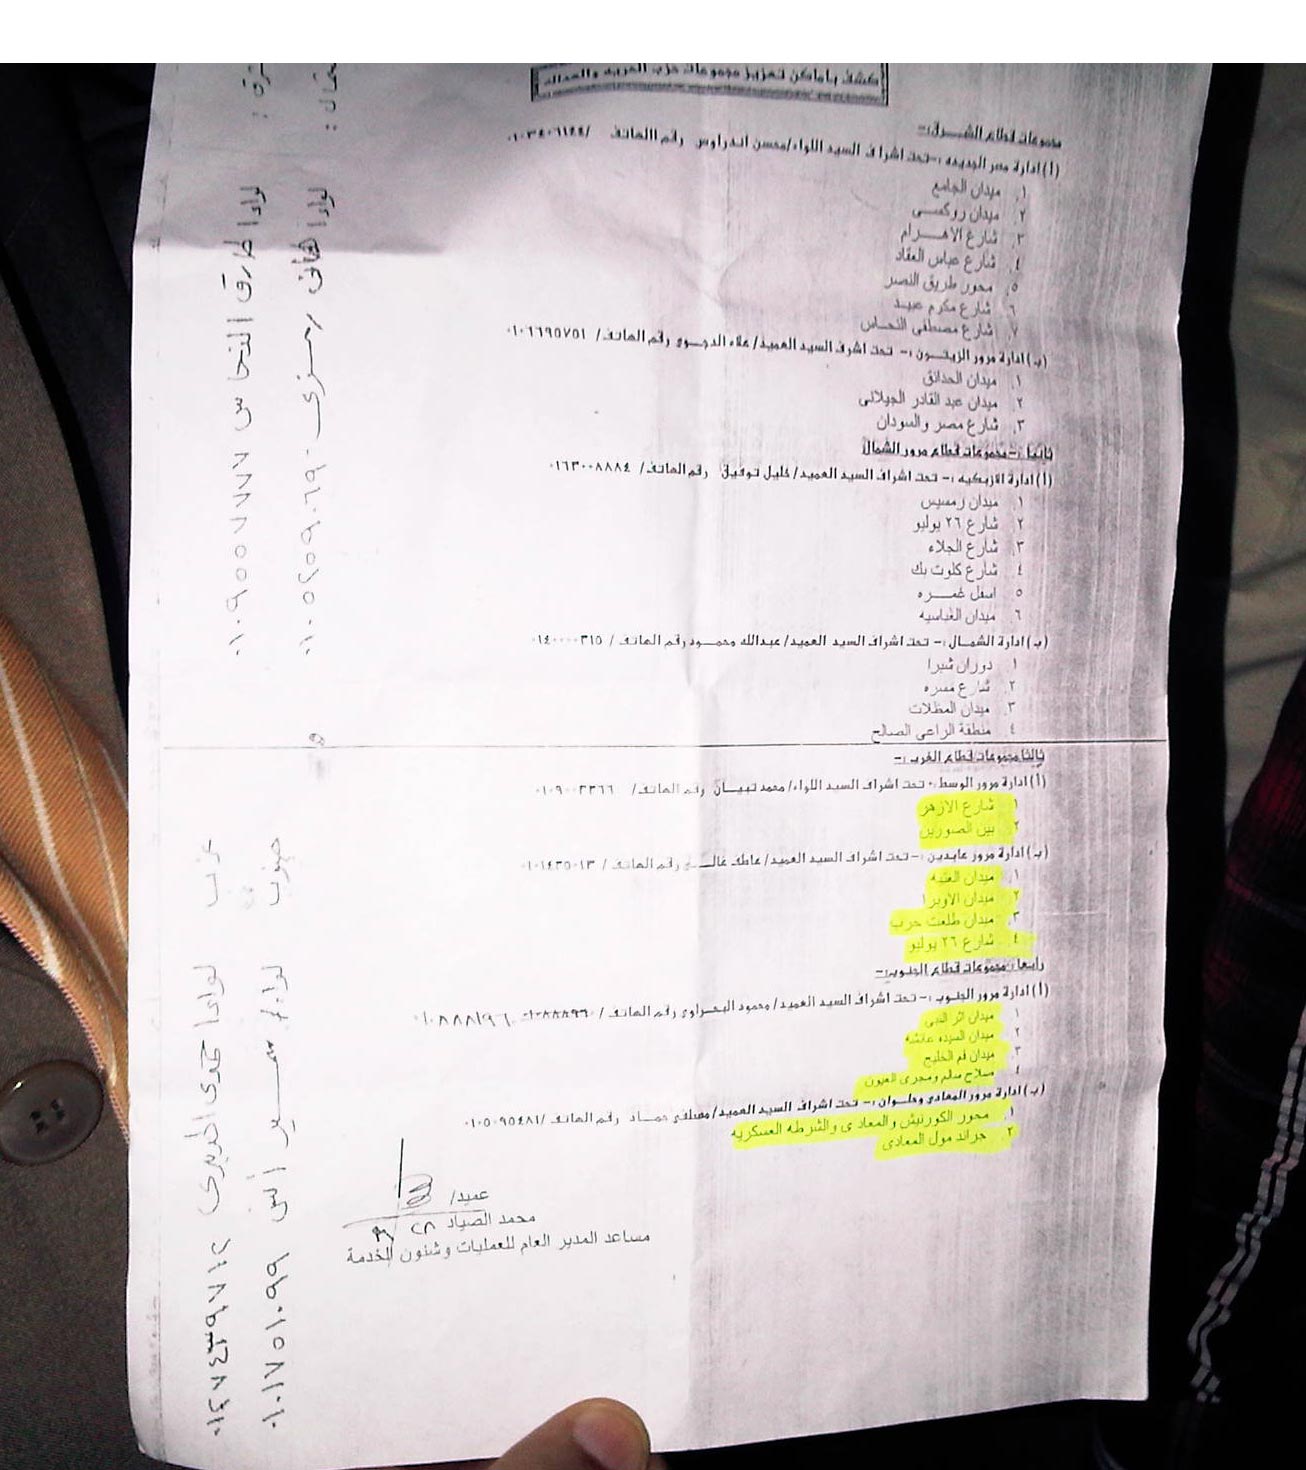 كشف باماكن تعزيز مجموعات حزب الحريه والعداله
مجموعات قطاع الشرق :-
(أ) ادارة مصر الجديده :- تحت اشراف السيد اللواء/محسن اندراوس رقم الهاتف /
١. ميدان الجامع
٢. ميدان روكسى
٣. شارع الاهرام
٤. شارع عباس العقاد
٥. محور طريق النصر
٦. شارع مكرم عبيد
٧. شارع مصطفى النحاس
(ب) ادارة مرور الزيتون :- تحت اشرف السيد العميد/ علاء الدجوي رقم الهاتف/ ٠١٠٦٦٩٥٧٥١
١. ميدان الحدائق
٢. ميدان عبد القادر الجيلانى
٣. شارع مصر والسودان
ثانيا :- مجموعات قطاع مرور الشمال
(أ) ادارة الازبكيه :- تحت اشراف السيد العميد/ خليل توفيق رقم الهاتف/ ٠١٦٣٠٠٨٨٨٤
١. ميدان رمسيس
٢. شارع ٢٦ يوليو
٣. شارع الجلاء
٤. شارع كلوت بك
٥. اسفل غمره
٦. ميدان العباسيه
(ب) ادارة الشمال :- تحت اشراف السيد العميد/ عبدالله محمود رقم الهاتف / ٠١٤٠٠٠٠٣١٥
١. دوران شبرا
٢. شارع مسره
٣. ميدان المظلات
٤. منطقة الراعى الصالح
ثالثا مجموعات قطاع الغرب :-
(أ) ادارة مرور الوسط :- تحت اشراف السيد اللواء/ محمد تبيان رقم الهاتف/ ٠١٠٩٠٠٢٣٦٦
١. شارع الازهر
٢. بين الصورين
(ب) ادارة مرور عابدين :- تحت اشراف السيد العميد/ عاطف رقم الهاتف / ٠١٠١٤٣٥٠١٣
١. ميدان العتبه
٢. ميدان الاوبرا
٣. ميدان طلعت حرب
٤. شارع ٢٦ يوليو
رابعا : مجموعات قطاع الجنوب :-
(أ) ادارة مرور الجنوب :- تحت اشراف السيد العميد/ محمود البحراوي رقم الهاتف / ٠١٠٨٨٨١٩٦
١. ميدان اثر النبى
٢. ميدان السيده عائشه
٣. ميدان فم الخليج
٤. صلاح سالم ومجرى العيون
(ب) ادارة مرور المعادي وحلوان :- تحت اشراف السيد العميد/ مصطفى حماد رقم الهاتف /٠١٠٥٠٩٥٤٨١
١. محور الكورنيش والمعادى والشرطه العسكريه
٢. جراند مول المعادى
عميد/
محمد الصياد
٢٨
مساعد المدير العام للعمليات وشئون الخدمة
لواء/ طارق النحاس ٠١٠٩٥٥٥٧٧٧٧
لواء/ هانى
لواء/
لواء/ سمير ٠١٠١٧٥١٠٩٩